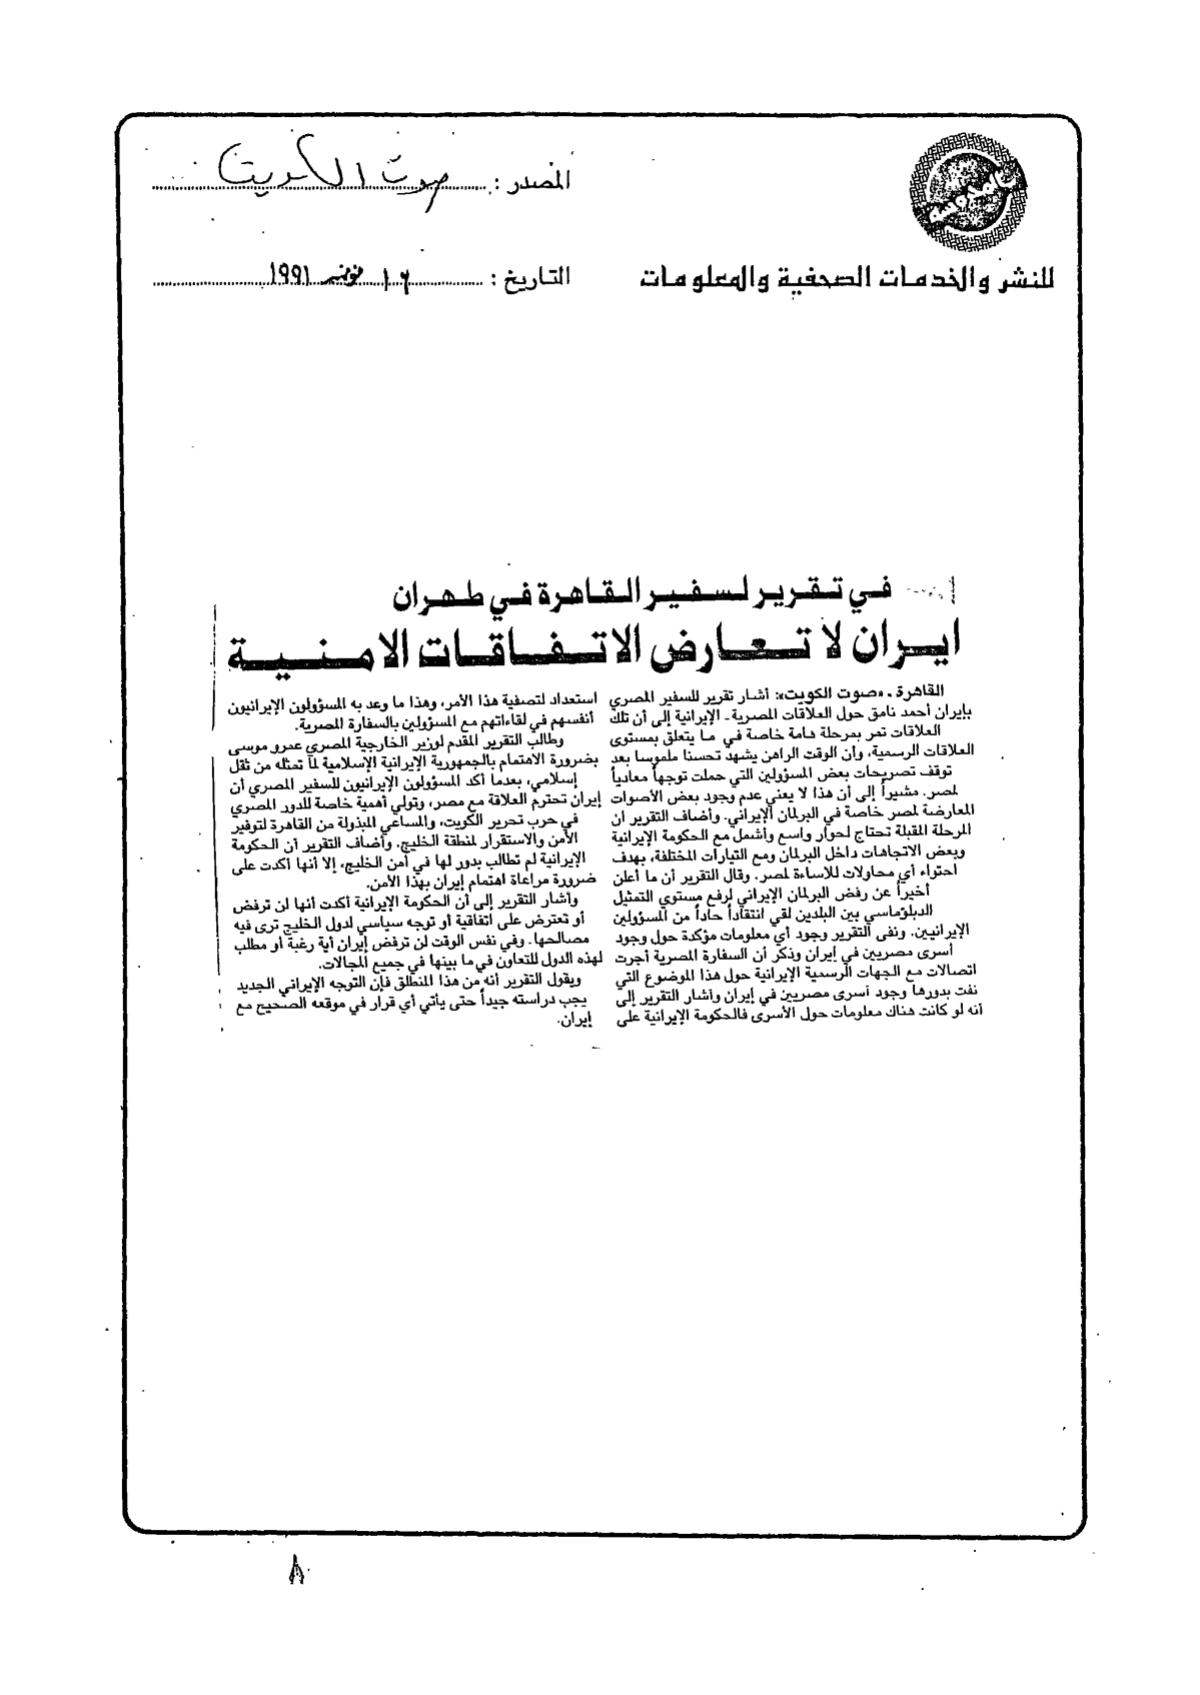 المصدر : صوت الكويت
للنشر والخدمات الصحفية والمعلومات
التاريخ : ١٦ نوفمبر ١٩٩١
في تقرير لسفير القاهرة في طهران
ايران لا تعارض الاتفاقات الامنية
القاهرة ـ «صوت الكويت»: أشار تقرير للسفير المصري
بإيران أحمد نامق حول العلاقات المصرية ـ الإيرانية إلى أن تلك
العلاقات تمر بمرحلة هامة خاصة في ما يتعلق بمستوى
العلاقات الرسمية، وأن الوقت الراهن يشهد تحسنا ملموسا بعد
توقف تصريحات بعض المسؤولين التي حملت توجهاً معادياً
لمصر. مشيراً إلى أن هذا لا يعني عدم وجود بعض الأصوات
المعارضة لمصر خاصة في البرلمان الإيراني. وأضاف التقرير أن
المرحلة المقبلة تحتاج لحوار واسع وأشمل مع الحكومة الإيرانية
وبعض الاتجاهات داخل البرلمان ومع التيارات المختلفة، بهدف
احتواء أي محاولات للاساءة لمصر. وقال التقرير أن ما أعلن
أخيراً عن رفض البرلمان الإيراني لرفع مستوي التمثيل
الدبلوماسي بين البلدين لقي انتقاداً حاداً من المسؤولين
الإيرانيين. ونفى التقرير وجود أي معلومات مؤكدة حول وجود
أسرى مصريين في إيران وذكر أن السفارة المصرية أجرت
اتصالات مع الجهات الرسمية الإيرانية حول هذا الموضوع التي
نفت بدورها وجود أسرى مصريين في إيران وأشار التقرير إلى
أنه لو كانت هناك معلومات حول الأسرى فالحكومة الإيرانية على
استعداد لتصفية هذا الأمر، وهذا ما وعد به المسؤولون الإيرانيون
أنفسهم في لقاءاتهم مع المسؤولين بالسفارة المصرية.
وطالب التقرير المقدم لوزير الخارجية المصري عمرو موسى
بضرورة الاهتمام بالجمهورية الإيرانية الإسلامية لما تمثله من ثقل
إسلامي، بعدما أكد المسؤولون الإيرانيون للسفير المصري أن
إيران تحترم العلاقة مع مصر، وتولي أهمية خاصة للدور المصري
في حرب تحرير الكويت، والمساعي المبذولة من القاهرة لتوفير
الأمن والاستقرار لمنطقة الخليج. وأضاف التقرير أن الحكومة
الإيرانية لم تطالب بدور لها في أمن الخليج، إلا أنها أكدت على
ضرورة مراعاة اهتمام إيران بهذا الأمن.
وأشار التقرير إلى أن الحكومة الإيرانية أكدت أنها لن ترفض
أو تعترض على اتفاقية أو توجه سياسي لدول الخليج ترى فيه
مصالحها. وفي نفس الوقت لن ترفض إيران أية رغبة أو مطلب
لهذه الدول للتعاون في ما بينها في جميع المجالات.
ويقول التقرير أنه من هذا المنطلق فإن التوجه الإيراني الجديد
يجب دراسته جيداً حتى يأتي أي قرار في موقعه الصحيح مع
إيران.
٨